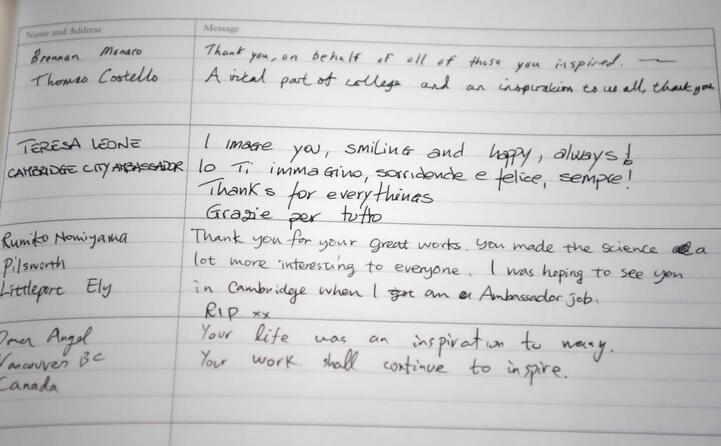 Name and Address Message
Brennan Monaco Thank you, on behalf of all of those you inspired.
Thomas Costello A vital part of college and an inspiration to us all, thank you
TERESA LEONE I image you, smiling and happy, always!
CAMBRIDGE CITY AMBASSADOR Io Ti immagino, sorridende e felice, sempre!
Thanks for everythings
Grazie per tutto
Rumiko Nomiyama Thank you for your great works. You made the science a
Pilsworth lot more interesting to everyone. I was hoping to see you
Littleport Ely in Cambridge when I got an Ambassador job.
RIP xx
Omer Angel Your life was an inspiration to many.
Vancouver BC Your work shall continue to inspire.
Canada